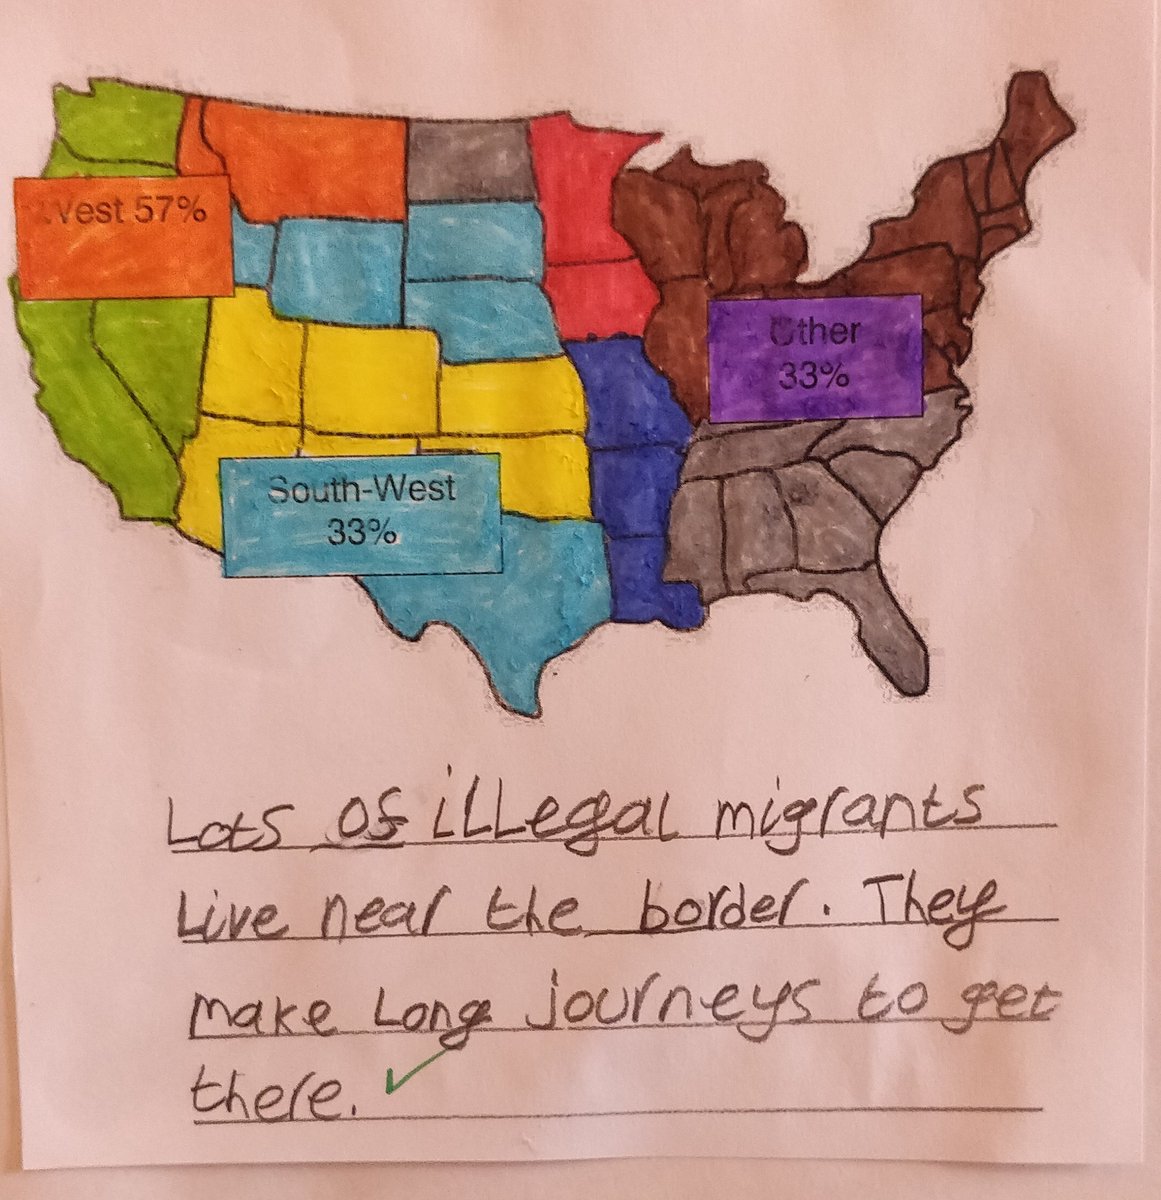 West 57%
Other
33%
South-West
33%
Lots of illegal migrants
Live near the border. They
make Long journeys to get
there.